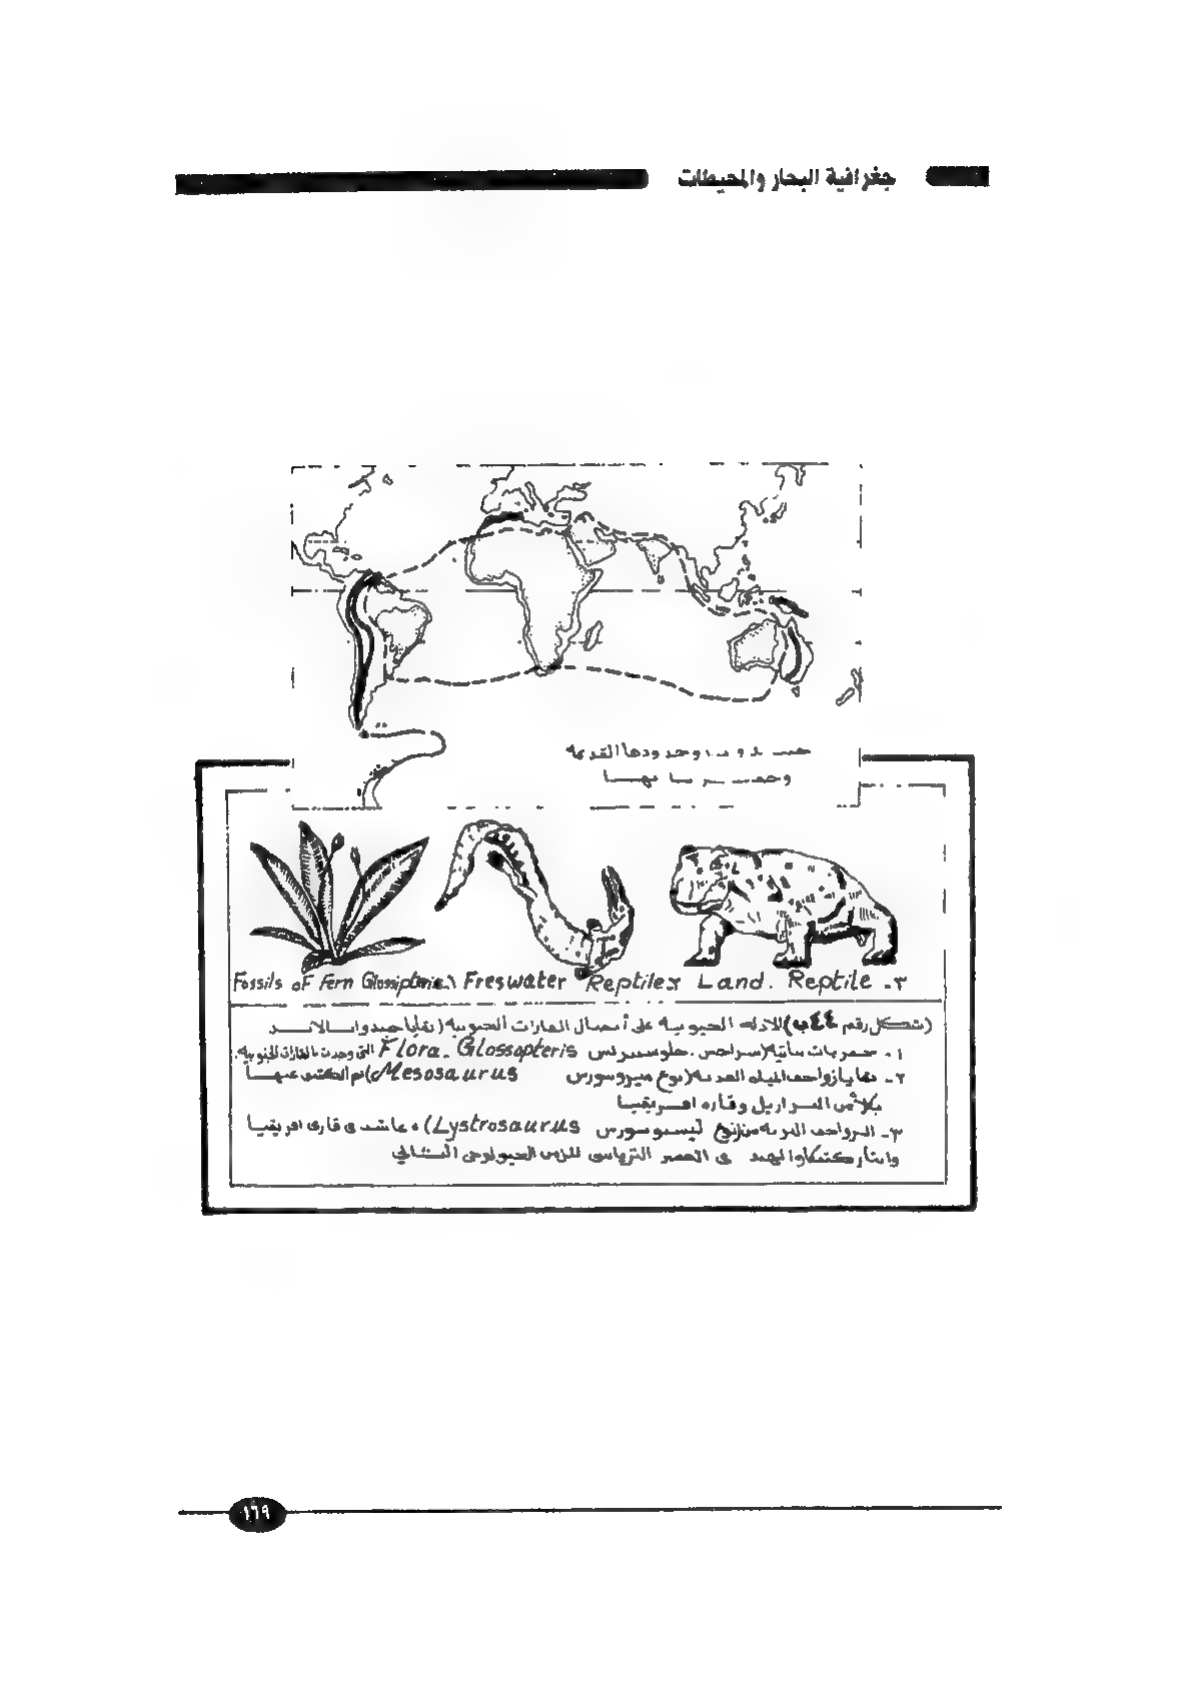 جغرافية البحار والمحيطات
وحدودها القديمة
Fossils of Fern Glossipteris Freswater Reptiles Land. Reptile ـ٣
(شكل رقم ٤٤ب) للأدلة الحيوية على أتصال القارات الجنوبية (بقايا جندوانالاند
١ـ حفريات نباتية (سراخس. جلوسبترس Flora - Glossopteris التى وجدت بالقارات الجنوبية.
٢ـ بقايا زواحف المياه العذبة (نوع ميزوسورس Mesosaurus) تم الكشف عنها
بكلا من البرازيل وقاره افريقيا
٣ـ الزواحف البرية من نوع ليستروسورس Lystrosaurus) عاشت فى قارى افريقيا
وانتاركتيكا والهند فى العصر الترياسى للزمن الجيولوجى الثانى
١٦٩